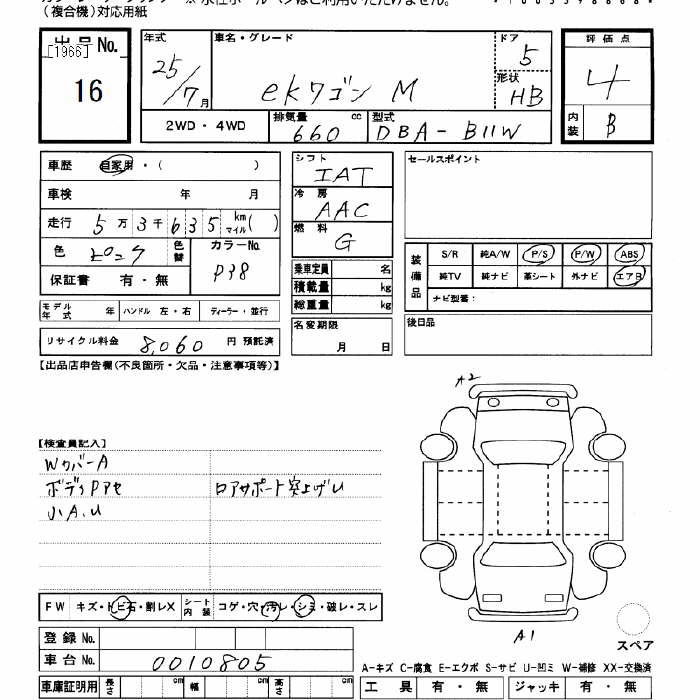 (複合機)対応用紙
出品No. 年式 車名・グレード ドア 評価点
[1966] 25/7月 ekワゴン M 5 4
16 形状 HB
2WD・4WD 排気量 660 cc 型式 DBA-B11W 内装 B
車歴 自家用・( ) シフト IAT セールスポイント
車検 年 月 冷房 AAC
走行 5万3千635 km マイル( ) 燃料 G
色 ピンク 色替 カラーNo. P38 装備品 S/R 純A/W P/S P/W ABS
保証書 有・無 乗車定員 名 純TV 純ナビ 革シート 外ナビ エアB
積載量 kg ナビ型番:
モデル年式 年 ハンドル 左・右 ディーラー・並行 総重量 kg
リサイクル料金 8,060 円 預託済 名変期限 月 日 後日品
【出品店申告欄(不良箇所・欠品・注意事項等)】
A2
【検査員記入】
Wカバ-A
ボディPアセ ロアサポート突上ゲU
小A.U
FW キズ・トビ石・割レX シート内装 コゲ・穴・汚レ・シミ・破レ・スレ
登録No. A1 スペア
車台No. 0010805
A-キズ C-腐食 E-エクボ S-サビ U-凹ミ W-補修 XX-交換済
車庫証明用 長さ cm 幅 cm 高さ cm 工具 有・無 ジャッキ 有・無